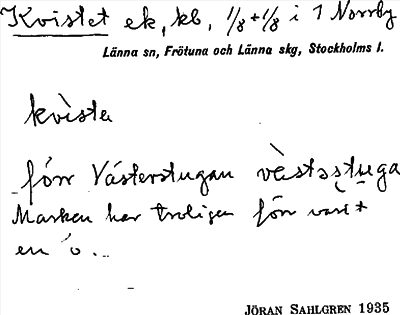 Kvistet ek, kb, 1/8+1/8 i 1 Norrby
Länna sn, Frötuna och Länna skg, Stockholms l.
kvìsta
förr Västerstugan vèstǝstuga
Marken har troligen förr varit
en ö...
JÖRAN SAHLGREN 1935